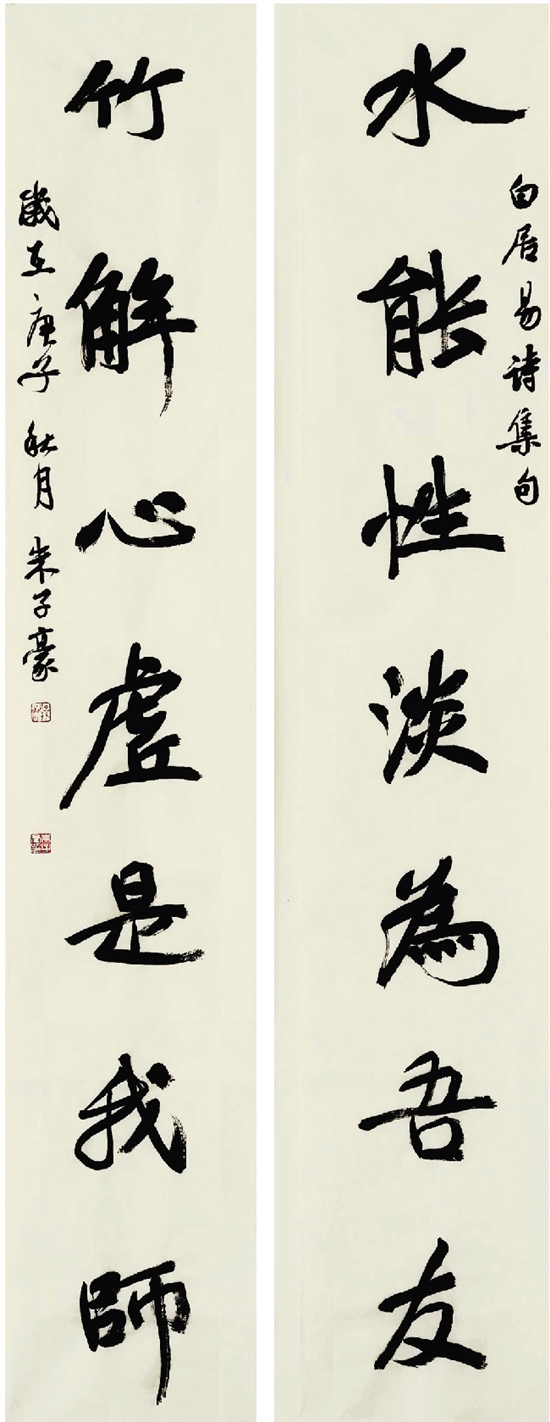 水能性淡為吾友
白居易诗集句
竹解心虛是我師
歲在庚子秋月朱子豪